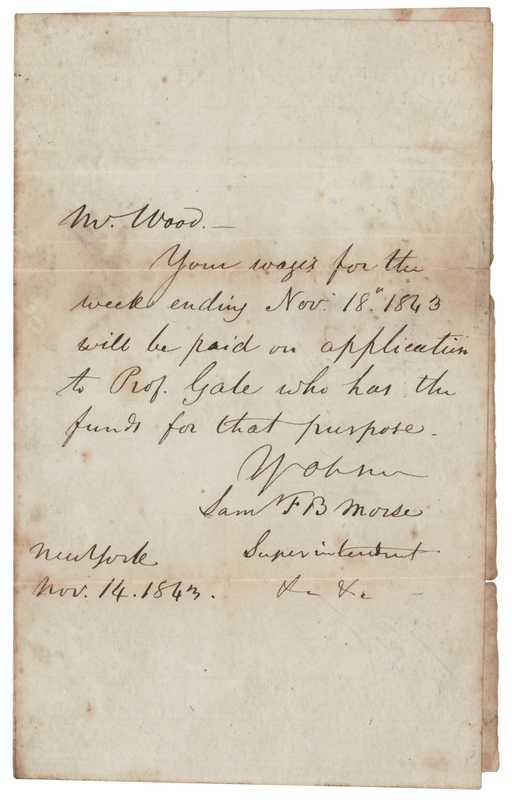 Mr. Wood. —
Your wages for the
week ending Nov. 18." 1843
will be paid on application
to Prof. Gale who has the
funds for that purpose.
Yr ob. ser
Saml F B Morse
New York Superintendent
Nov. 14. 1843. &c &c —